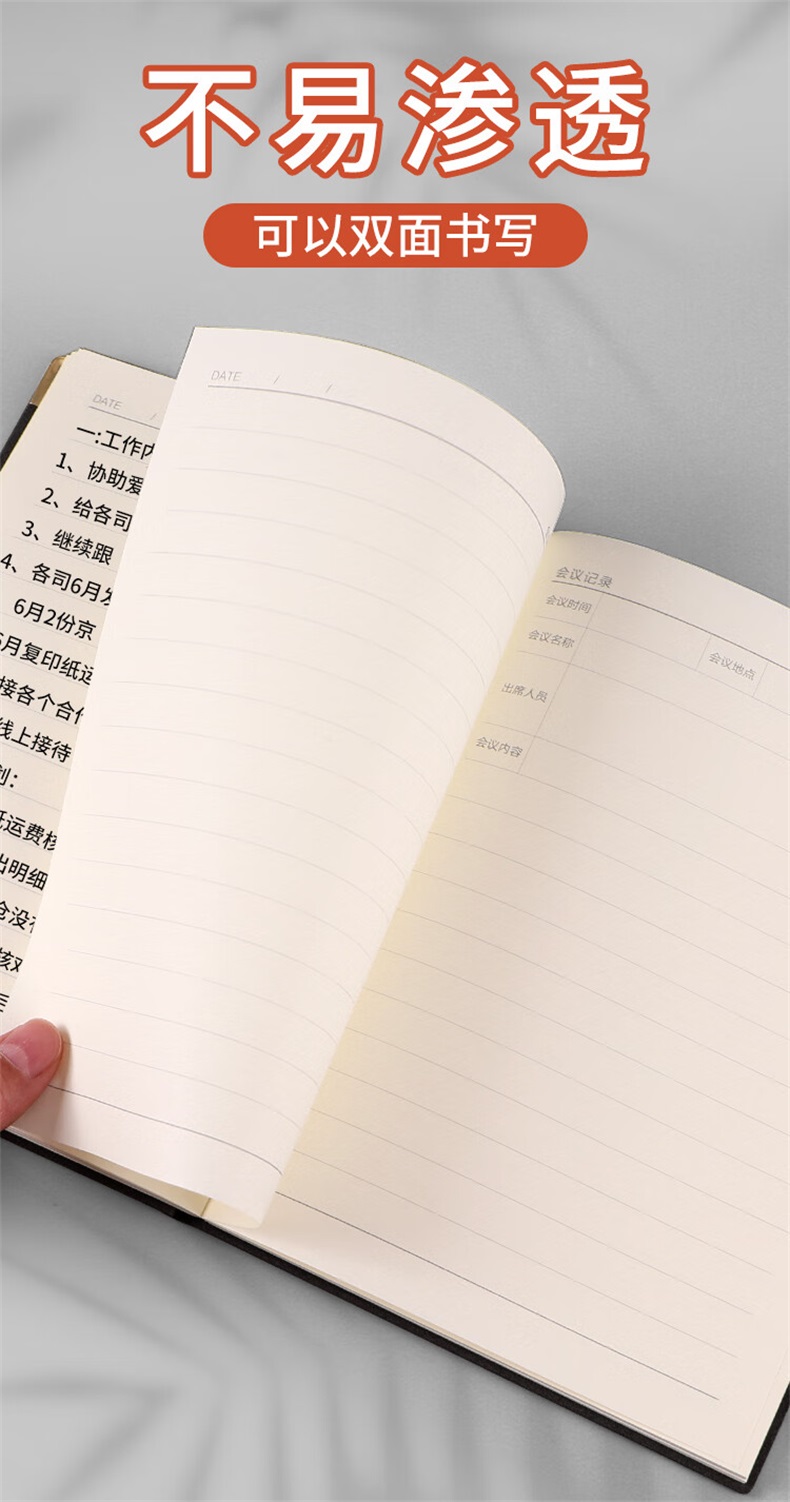 不易渗透
可以双面书写
DATE / /
DATE /
一:工作内
1、协助爱
2、给各司
3、继续跟
4、各司6月发
6月2份京
6月复印纸运
接各个合作
线上接待
划：
运费核
出明细
仓没有
核对
会议记录
会议时间
会议名称
会议地点
出席人员
会议内容